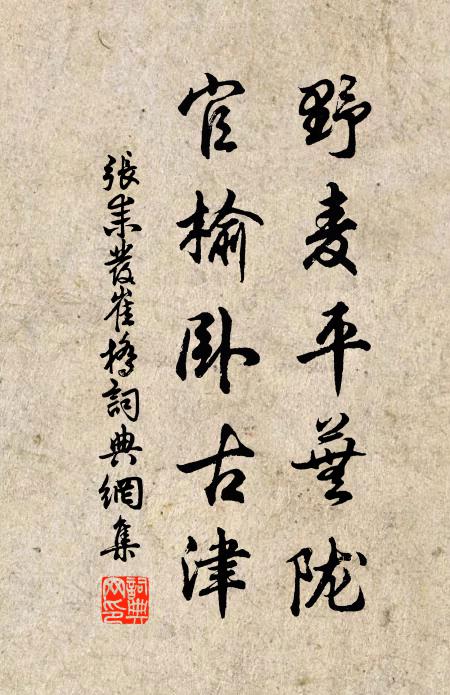 野麦平蕪陇
官榆卧古津
張耒發崔橋詞典網集
詞典网印